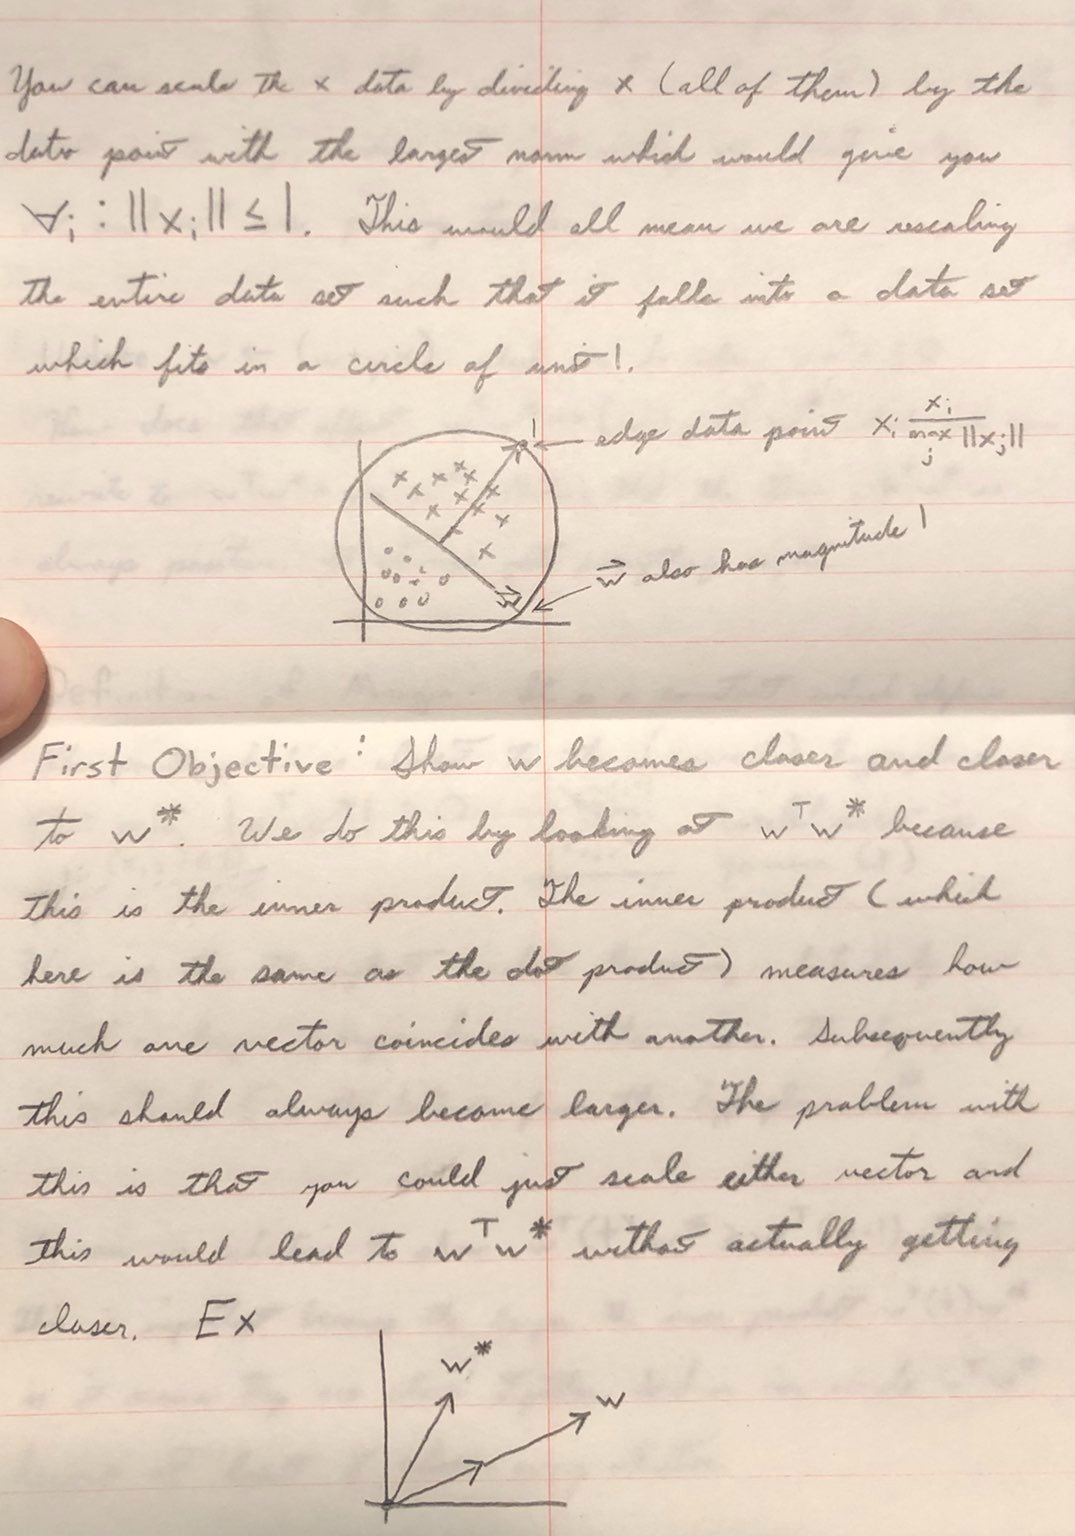 You can scale the x data by dividing x (all of them) by the
data point with the largest norm which would give you
∀i : ||xi|| ≤ 1. This would all mean we are rescaling
the entire data set such that it falls into a data set
which fits in a circle of unit 1.
1 ← edge data point xi xi / max j ||xj||
w⃗ also has magnitude 1
w⃗
First Objective : Show w becomes closer and closer
to w*. We do this by looking at wᵀw* because
this is the inner product. The inner product (which
here is the same as the dot product) measures how
much one vector coincides with another. Subsequently
this should always become larger. The problem with
this is that you could just scale either vector and
this would lead to wᵀw* without actually getting
closer. Ex
w*
w